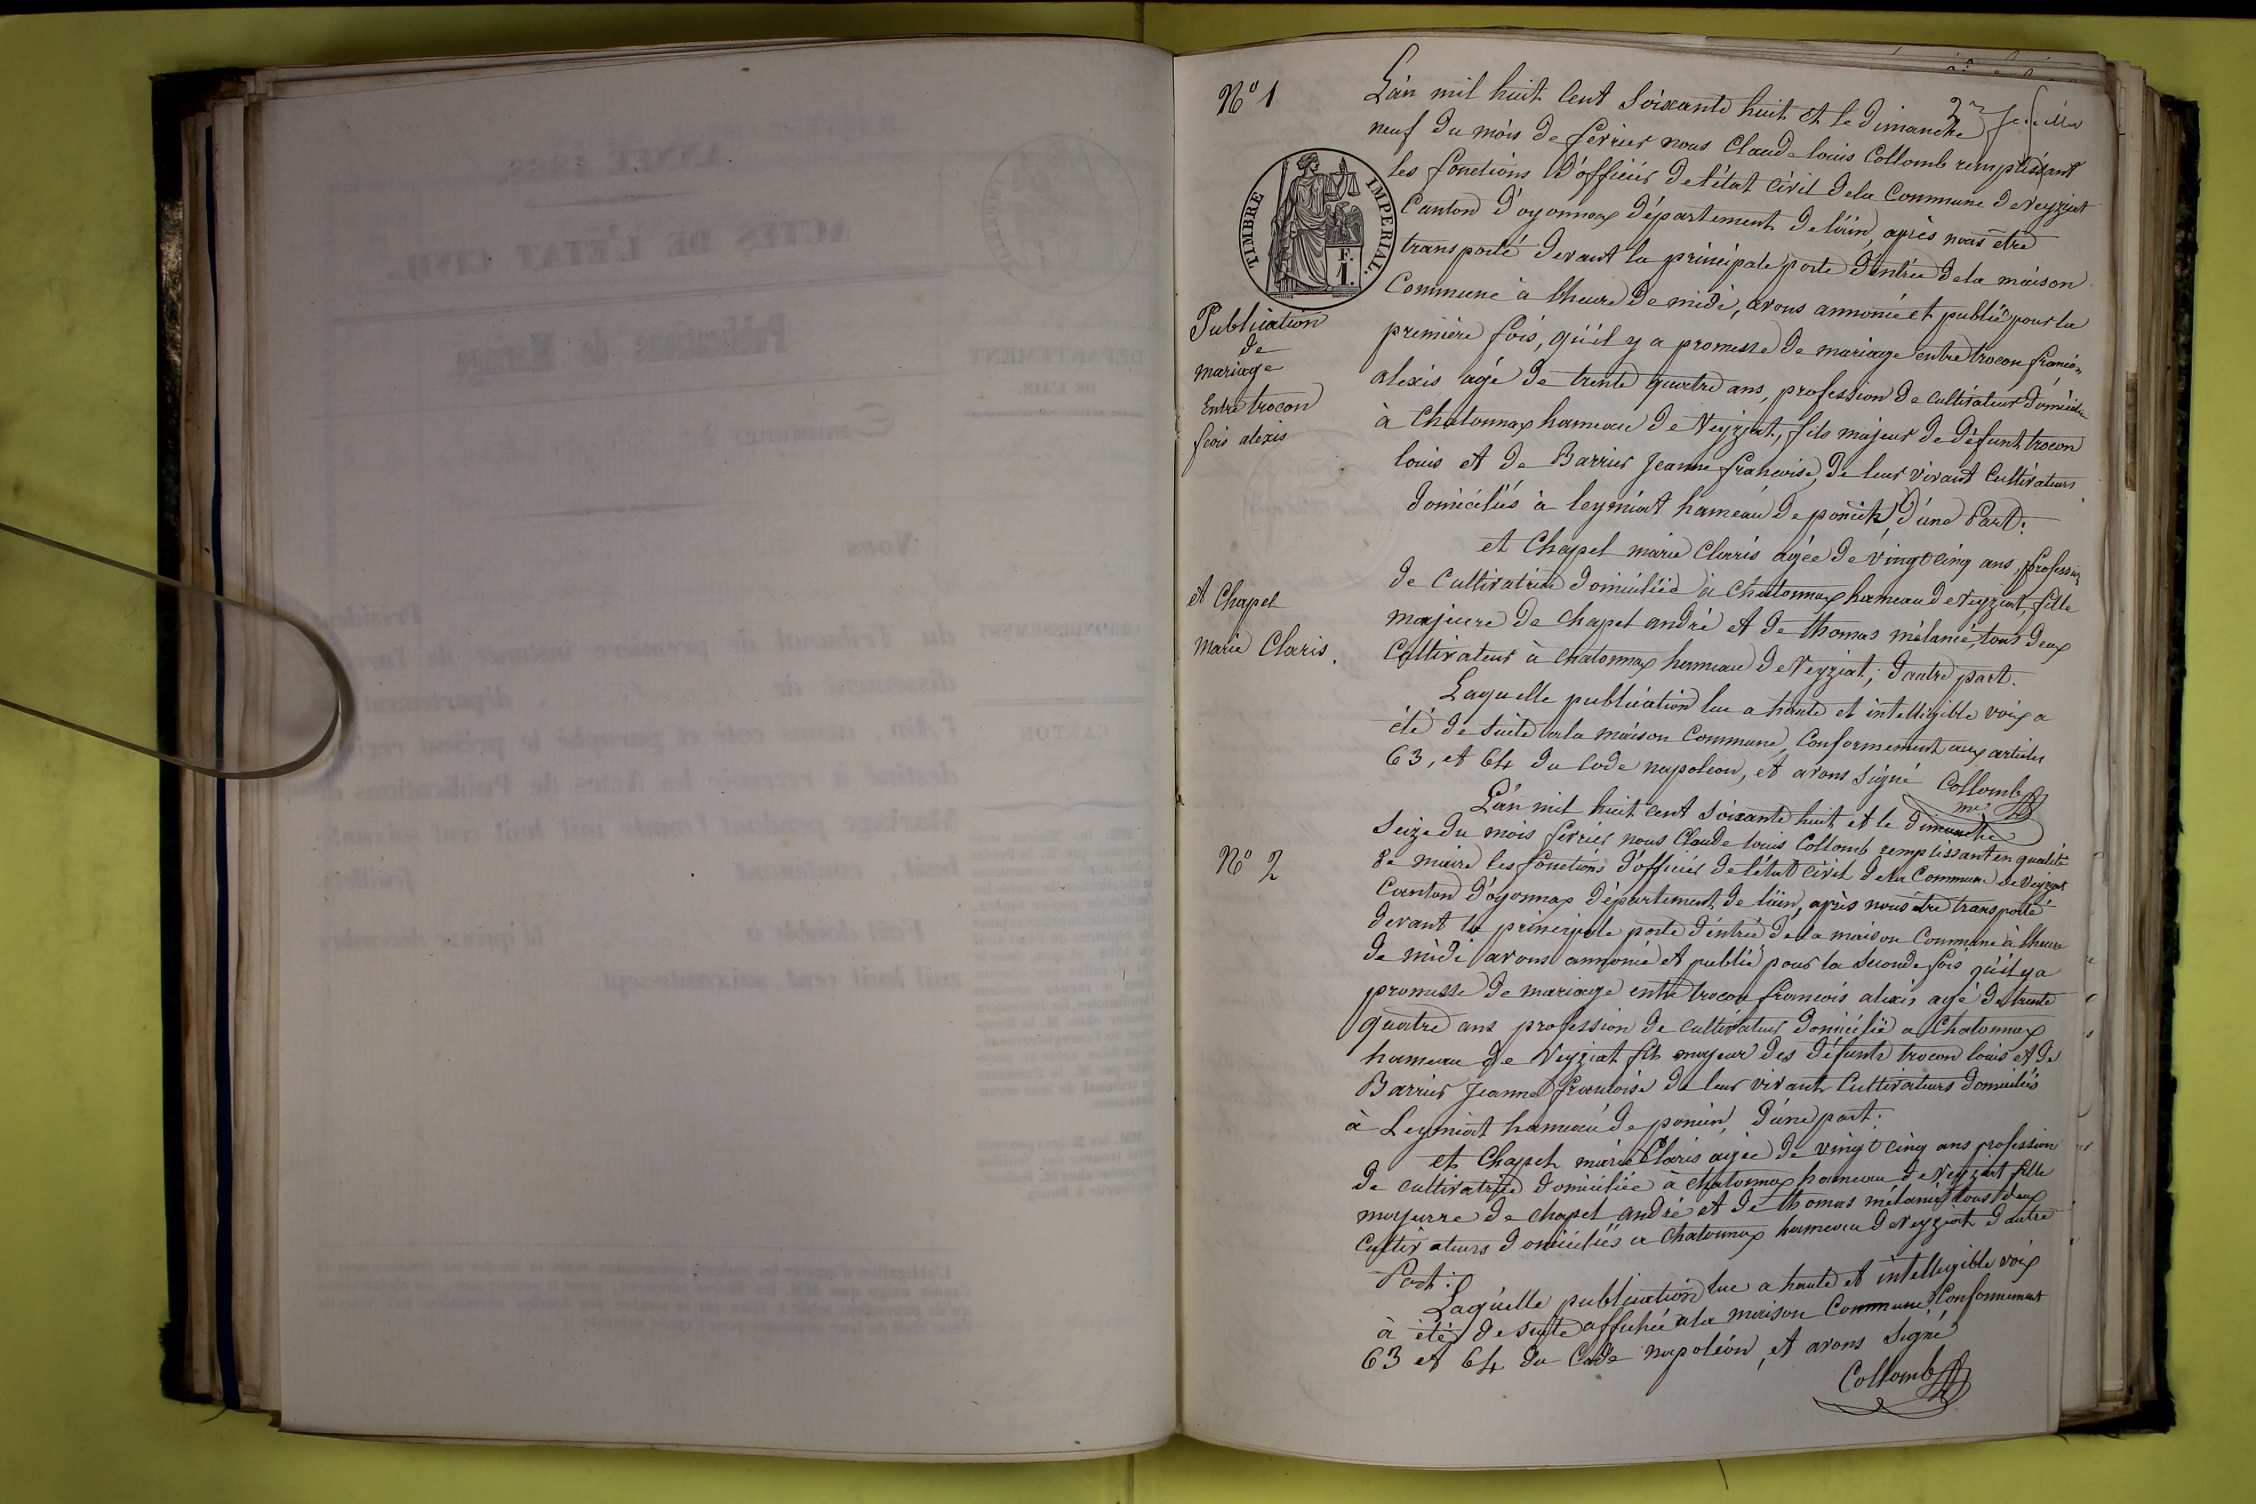 N° 1
L'an mil huit Cent Soixante huit et le Dimanche
neuf du mois de fevrier nous Claude louis Collomb remplissant
les fonctions d'officier de l'état civil dela Commune de Veyziat
Canton d'oyonnax département de l'ain, après nous être
transporté devant la principale porte d'entrée dela maison
Commune à l'heure de midi, avons annoncé et publié pour la
première fois, qu'il y a promesse de mariage entre trocon françois
alexis agé de trente quatre ans, profession de cultivateur domicilié
à Chatonnax hameau de Veyziat, fils majeur de défunt trocon
louis et de Barrier Jeanne francoise, de leur vivant Cultivateurs
domiciliés à leymiat hameau de poncin, d'une Part:
et Chapel marie Claris agée de vingt cinq ans, profession
de Cultivatrice domiciliée à Chatonnax hameau de Veyziat, fille
majeure de Chapel andré et de thomas mélanie, tous deux
Cultivateur à chatonnax hameau de Veyziat; d'autre part.
Laquelle publication lue a haute et intelligible voix a
été de suite a la maison Commune, Conformement aux articles
63, et 64 du Code napoléon, et avons signé Collomb
me
TIMBRE IMPERIAL.
F.
1.
Publication
de
mariage
Entre trocon
fcois alexis
et Chapel
Marie Claris.
N° 2
L'an mil huit cent soixante huit et le dimanche
Seize du mois fevrier nous Claude louis Collomb remplissant en qualité
de maire les fonctions d'officier de l'état civil dela Commune de Veyziat
Canton d'oyonnax département de l'ain, après nous être transporté
devant la principale porte d'entrée dela maison Commune à l'heure
de midi avons annoncé et publié pour la seconde fois qu'il y a
promesse de mariage entre trocon francois alexis agé de trente
quatre ans profession de cultivateur domicilié a Chatonnax
hameau de Veyziat fils majeur des défunts trocon louis et de
Barrier Jeanne francoise de leur vivant Cultivateurs domiciliés
à Leymiat hameau de poncin, d'une part:
et Chapel marie Claris agée de vingt cinq ans profession
de cultivatrice domiciliée à chatonnax hameau de Veyziat fille
majeurre de chapel andré et de thomas mélanie tous deux
Cultivateurs domiciliés a Chatonnax hameau de Veyziat d'autre
Part:
Laquelle publication lue a haute et intelligible voix
à été de suite affichée a la maison Commune, Conformement
63 et 64 du Code napoléon, et avons signé
Collomb